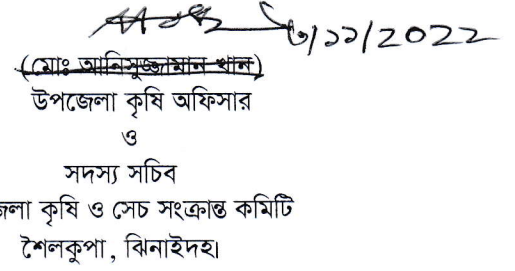 ৩/১১/2022
(মোঃ আনিসুজ্জামান খান)
উপজেলা কৃষি অফিসার
ও
সদস্য সচিব
জেলা কৃষি ও সেচ সংক্রান্ত কমিটি
শৈলকুপা, ঝিনাইদহ।